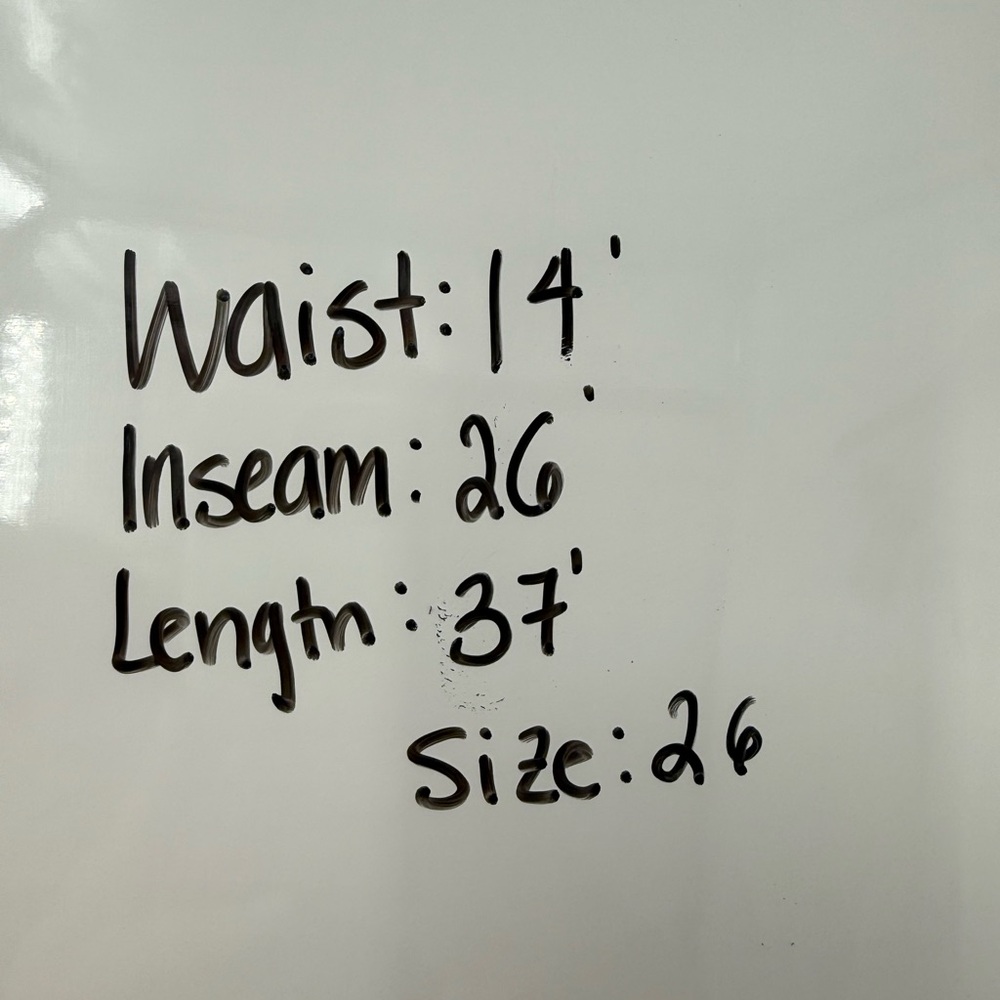 Waist: 14'
Inseam: 26'
Length: 37'
Size: 26